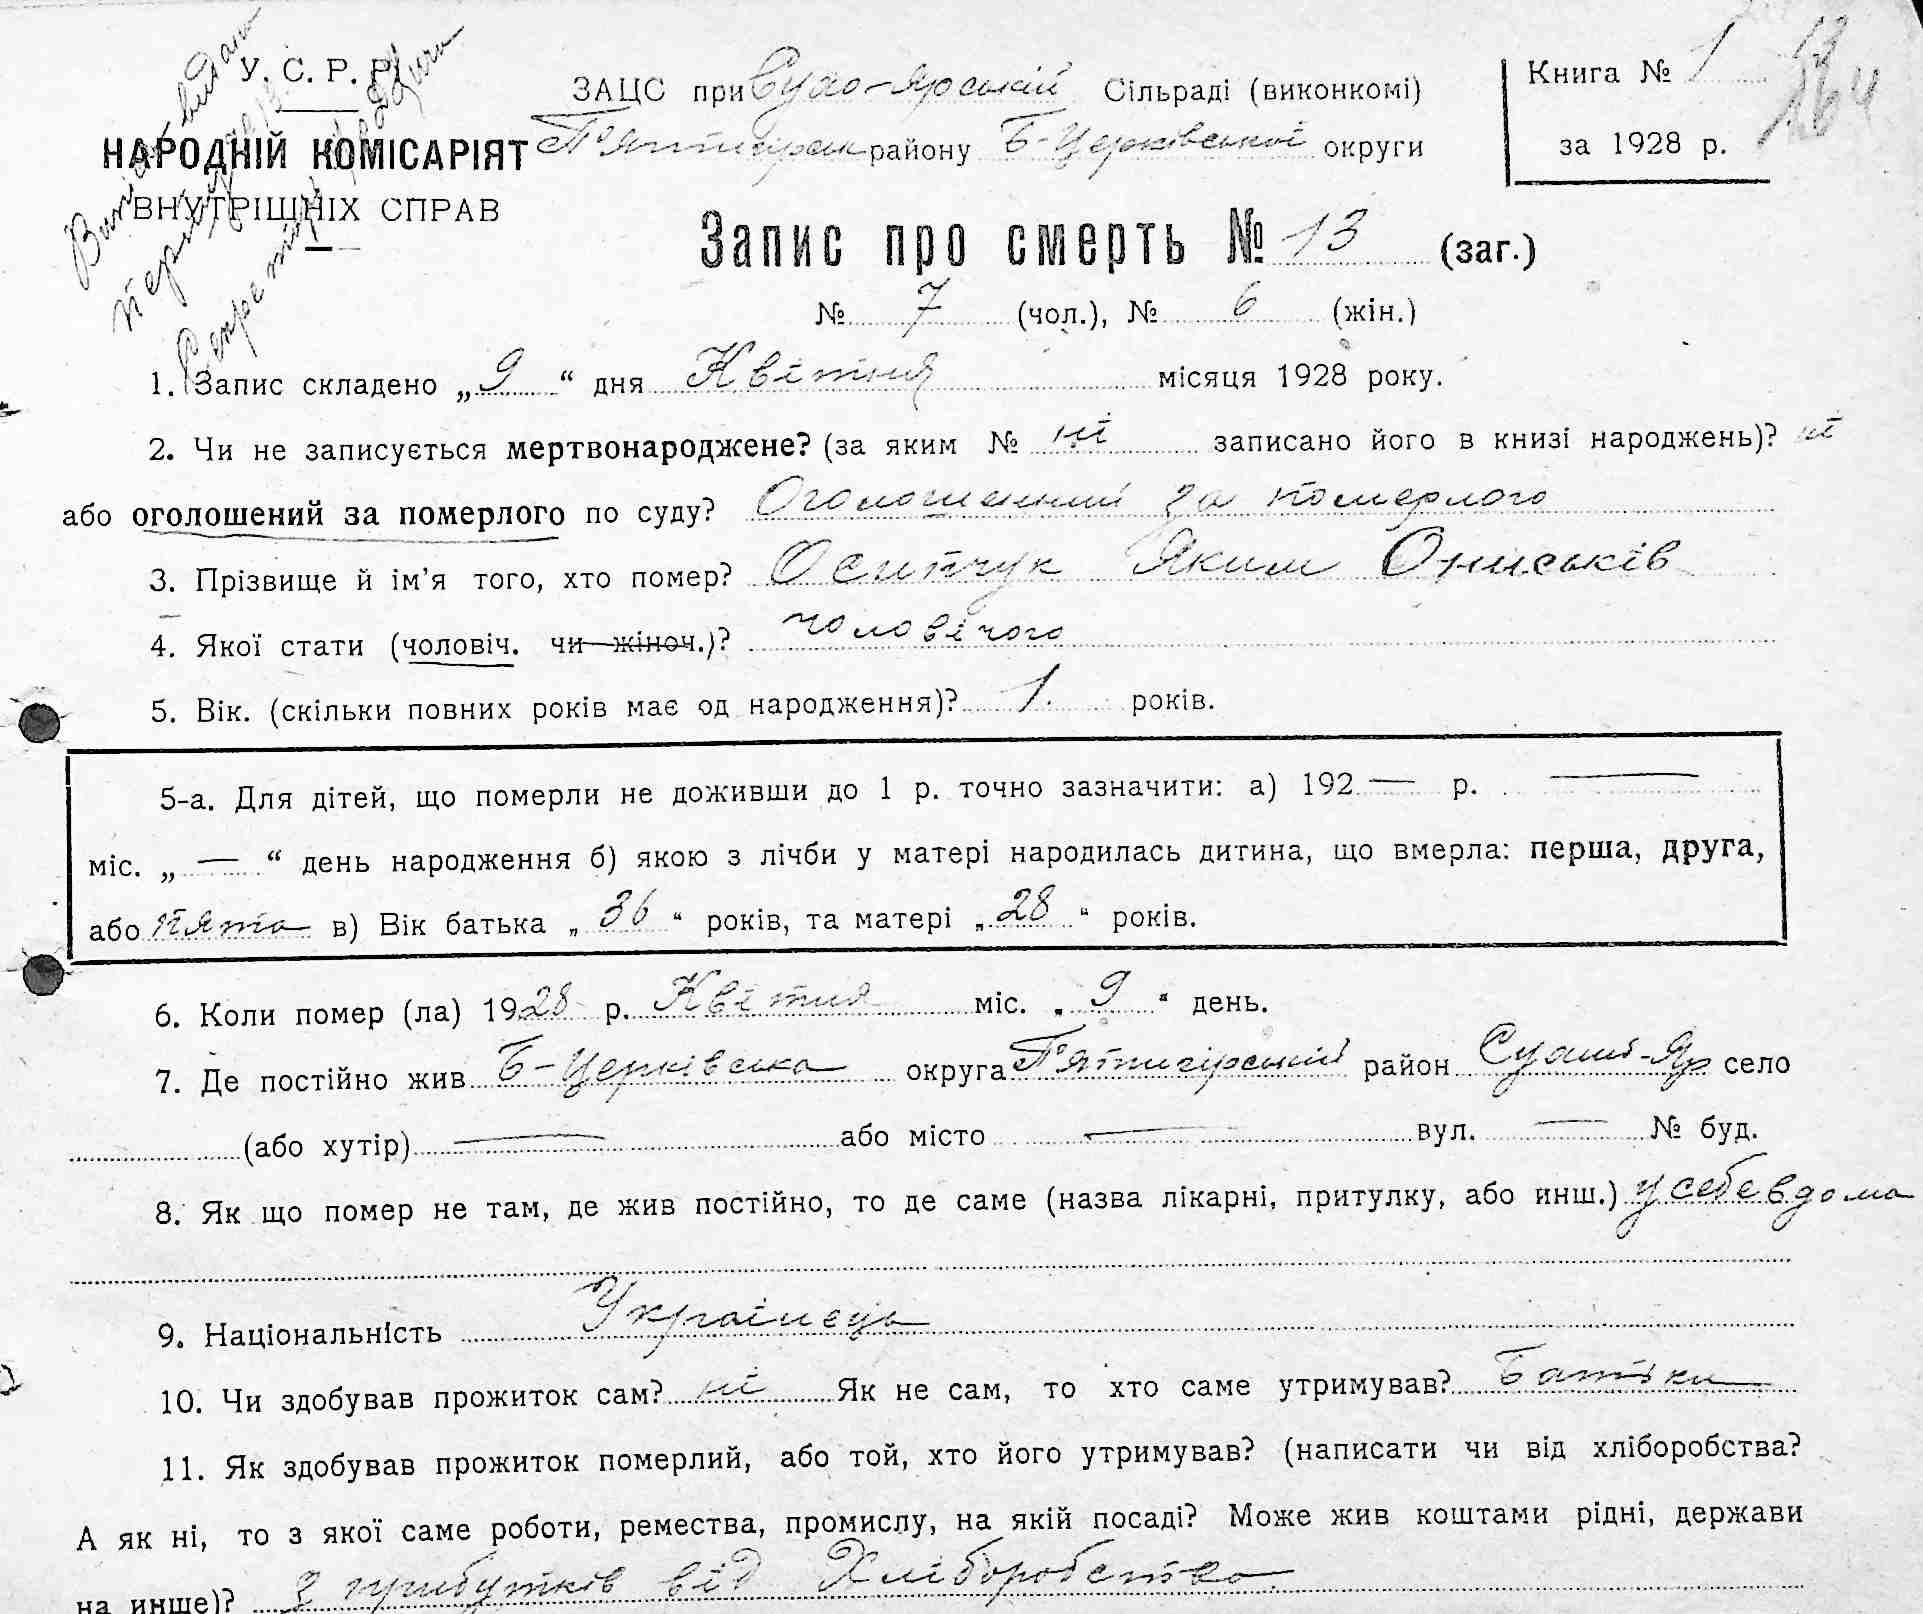 Витяг видано
У. С. Р. Р.
НАРОДНІЙ КОМІСАРІЯТ
ВНУТРІШНІХ СПРАВ
ЗАЦС при Сухо-Ярській Сільраді (виконкомі)
П'ятигірськ району Б-Церківської округи
Книга № 1
за 1928 р.
264
Запис про смерть № 13 (заг.)
№ 7 (чол.), № 6 (жін.)
1. Запис складено „9“ дня Квітня місяця 1928 року.
2. Чи не записується мертвонароджене? (за яким № ні записано його в книзі народжень)? ні
або оголошений за померлого по суду? Оголошенний за померлого
3. Прізвище й ім'я того, хто помер? Осипчук Яким Ониськів
4. Якої стати (чоловіч. чи жіноч.)? чоловічого
5. Вік. (скільки повних років має од народження)? 1. років.
5-а. Для дітей, що померли не доживши до 1 р. точно зазначити: а) 192 — р. —
міс. „ — “ день народження б) якою з лічби у матері народилась дитина, що вмерла: перша, друга,
або пята в) Вік батька „36“ років, та матері „28“ років.
6. Коли помер (ла) 1928 р. Квітня міс. „9“ день.
7. Де постійно жив Б-Церківська округа П'ятигірський район Сухий-Яр село
(або хутір) — або місто — вул. — № буд.
8. Як що помер не там, де жив постійно, то де саме (назва лікарні, притулку, або инш.) у себе вдома
9. Національність Українець
10. Чи здобував прожиток сам? ні Як не сам, то хто саме утримував? Батьки
11. Як здобував прожиток померлий, або той, хто його утримував? (написати чи від хліборобства?
А як ні, то з якої саме роботи, ремества, промислу, на якій посаді? Може жив коштами рідні, держави
на инше)? З прибутків від Хліборобства